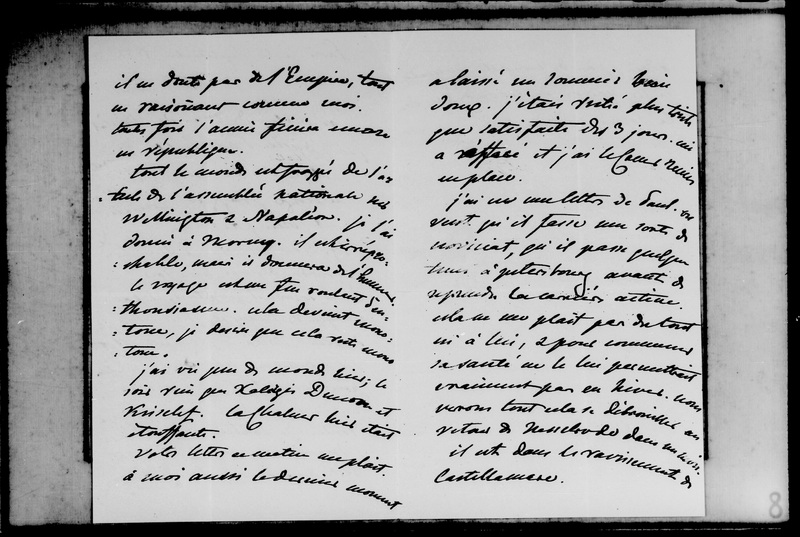 il ne doute pas de l'Empire, tout
en raisonnant comme moi.
toutes fois l'année finira encore
en république.
tout le monde est frappé de l'ar-
-ticle de l'assemblée nationale sur
Wellington & Napoléon. je l'ai
donné à Morny. il est irrépro-
-chable, mais il donnera de l'humeur.
le voyage est un feu roulant d'en-
-thousiasme. cela devient mono-
-tone, je desire que cela reste mono
-tone.
j'ai vu peu de monde hier, le
soir rien que Kalergis Dumon et
Kisselef. la chaleur hier était
étouffante.
votre lettre ce matin me plait.
à moi aussi le dernier moment
a laissé un souvenir bien
doux. j'étais restée plus triste
que satisfaite des 3 jours.
a effacé et j'ai le cœur remis
en place.
j'ai eu une lettre de Paul. on
veut qu'il fasse une sorte de
noviciat, qu'il passe quelque
tems à petersbourg avant de
reprendre la carrière active.
cela ne me plait pas du tout
ni à lui, & pour commencer
sa santé ne le lui permettrait
vraiment pas en hiver. nous
verrons tout cela se débrouiller au
retour de Nesselrode dans un mois.
il est dans le ravissement de
Castellamare.
8